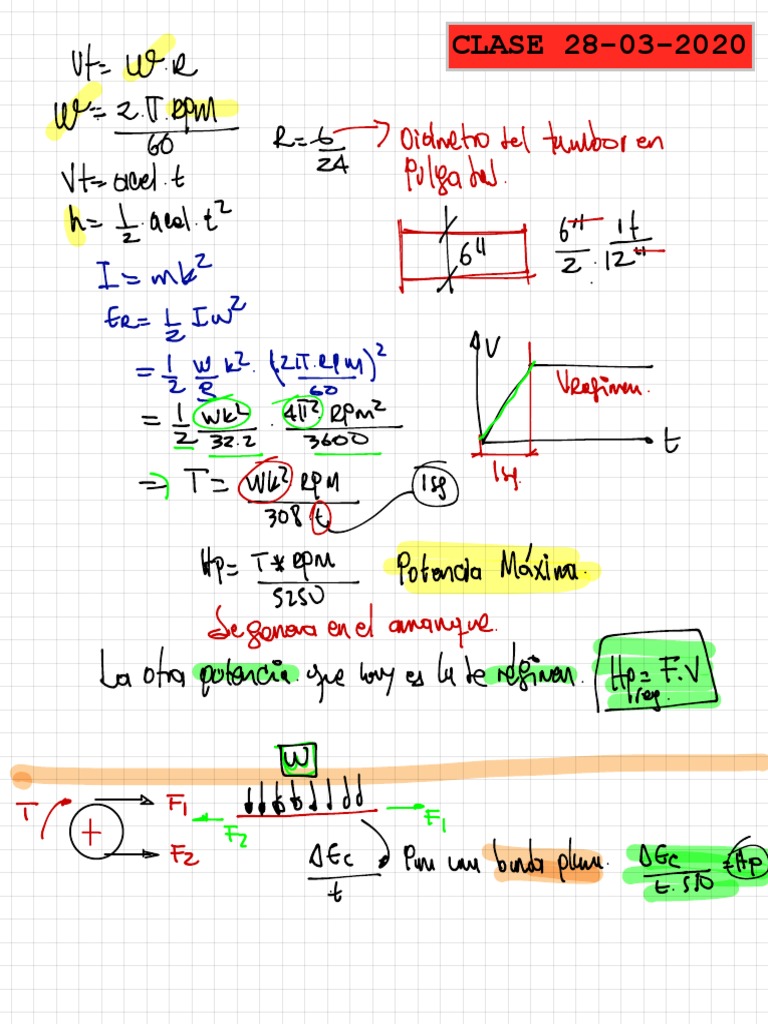 CLASE 28-03-2020
Vt = W.R
W = 2.π.RPM / 60
R = 6 / 24 → Diámetro del tambor en pulgadas.
Vt = acel.t
h = 1/2 . acel. t²
6" 6"/2 . 1f/12"
I = mk²
ER = 1/2 I w²
= 1/2 W/g k² . (2π.RPM / 60)²
V
V Regimen.
t
1sg.
= 1/2 WK²/32.2 . 4π² RPM²/3600
=> T = WK² RPM / 308 t
1sg
Hp = T * RPM / 5250 Potencia Máxima.
Se genera en el arranque.
La otra potencia que hay es la de régimen. Hp reg. = F.V
W
T F1 F2 F2 F1
ΔEc / t Para una banda plana. ΔEc / t. 550 = Hp